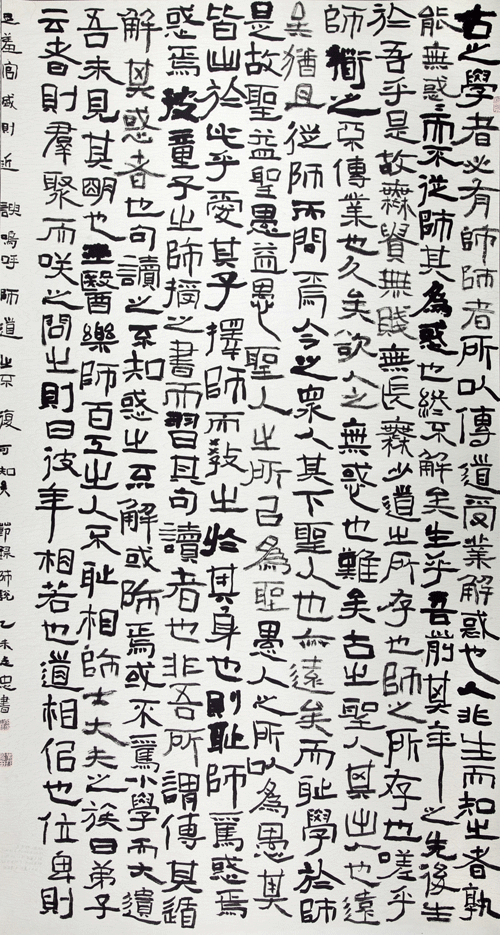 古之學者必有師師者所以傳道受業解惑也人非生而知之者孰
能無惑〻而不從師其為惑也終不解矣生乎吾前其年之先後生
於吾乎是故無貴無賤無長無少道之所存也師之所存也嗟乎
師衜之不傳業也久矣欲人之無惑也難矣古之聖人其出人也遠
矣猶且從師而問焉今之眾人其下聖人也亦遠矣而耻學於師
是故聖益聖愚益愚聖人之所以為聖愚人之所以為愚其
皆出於此乎愛其子擇師而教之於其身也則耻師焉惑焉
惑焉彼童子之師授之書而習其句讀者也非吾所謂傳其道
解其惑者也句讀之不知惑之不解或師焉或不焉小學而大遺
吾未見其明也巫醫樂師百工之人不耻相師士大夫之族曰弟子
云者則羣聚而咲之問之則曰彼年相若也道相似也位卑則
足羞官盛則近諛嗚呼師道之不復可知矣 節錄師說 乙未 忠書